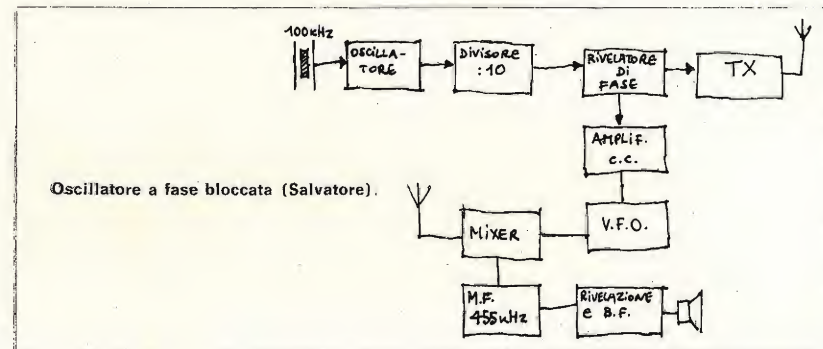 100KHZ
OSCILLA-
TORE
DIVISORE
:10
RIVELATORE
DI
FASE
TX
AMPLIF.
C.C.
Oscillatore a fase bloccata (Salvatore).
MIXER
V.F.O.
M.F.
455KHZ
RIVELAZIONE
e B.F.